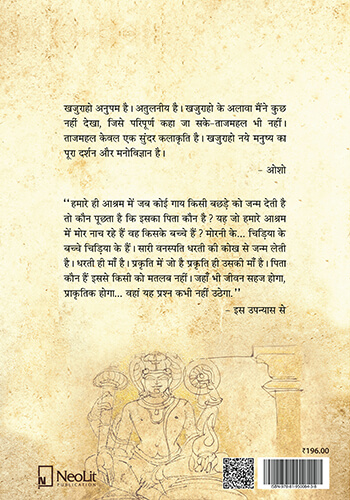 खजुराहो अनुपम है। अतुलनीय है। खजुराहो के अलावा मैंने कुछ
नहीं देखा, जिसे परिपूर्ण कहा जा सके-ताजमहल भी नहीं।
ताजमहल केवल एक सुंदर कलाकृति है। खजुराहो नये मनुष्य का
पूरा दर्शन और मनोविज्ञान है।
- ओशो
“हमारे ही आश्रम में जब कोई गाय किसी बछड़े को जन्म देती है
तो कौन पूछता है कि इसका पिता कौन है? यह जो हमारे आश्रम
में मोर नाच रहे हैं वह किसके बच्चे हैं? मोरनी के... चिड़िया के
बच्चे चिड़िया के हैं। सारी वनस्पति धरती की कोख से जन्म लेती
है। धरती ही माँ है। प्रकृति में जो है प्रकृति ही उसकी माँ है। पिता
कौन हैं इससे किसी को मतलब नहीं। जहाँ भी जीवन सहज होगा,
प्राकृतिक होगा... वहां यह प्रश्न कभी नहीं उठेगा।”
- इस उपन्यास से
₹196.00
NeoLit
PUBLICATION